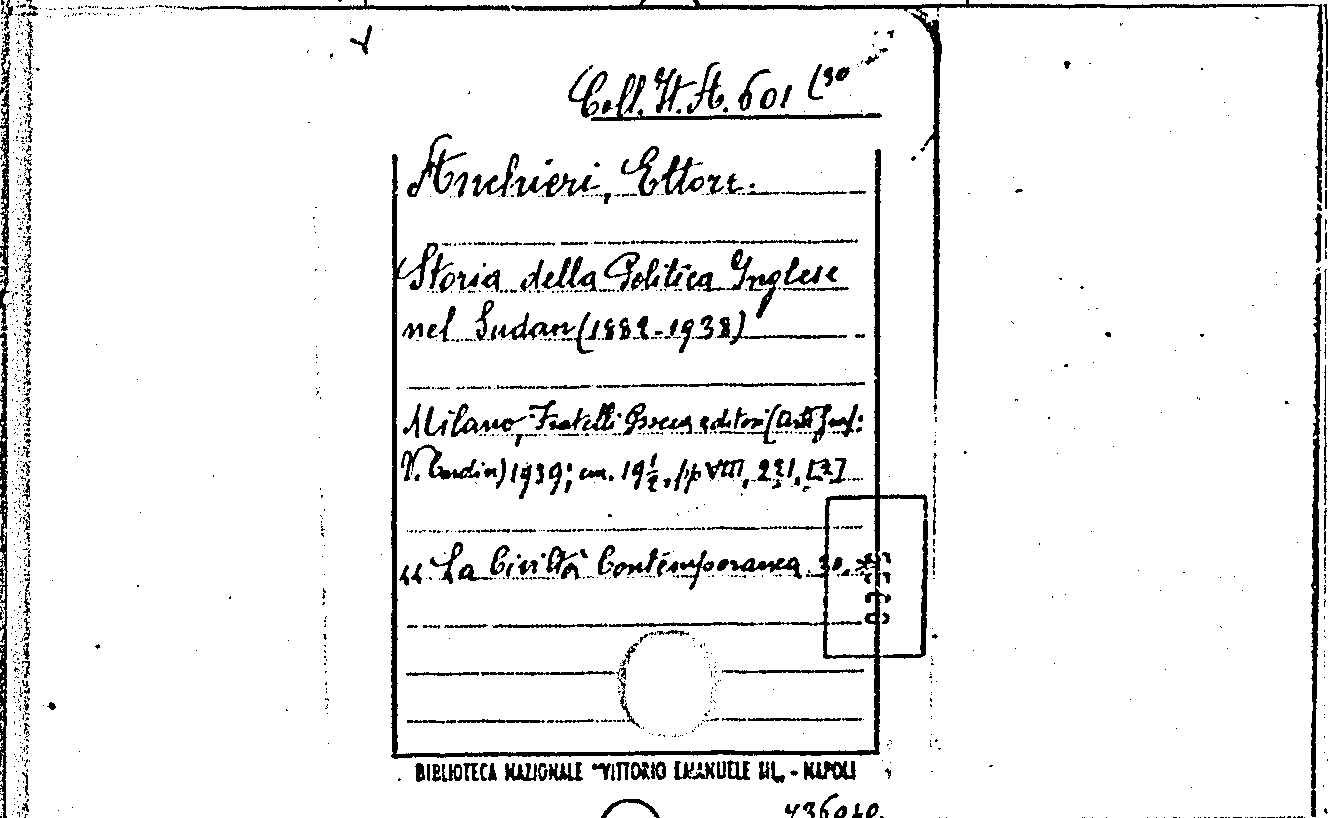 Coll. It. A. 601 (30
Anchieri, Ettore.
Storia della Politica Inglese
nel Sudan (1882-1938)
Milano, Fratelli Bocca editori (Arti Graf:
1939; cm. 19 1/2, pp VIII,
"La Civiltà Contemporanea 30.
BIBLIOTECA NAZIONALE "VITTORIO EMANUELE III„ - NAPOLI